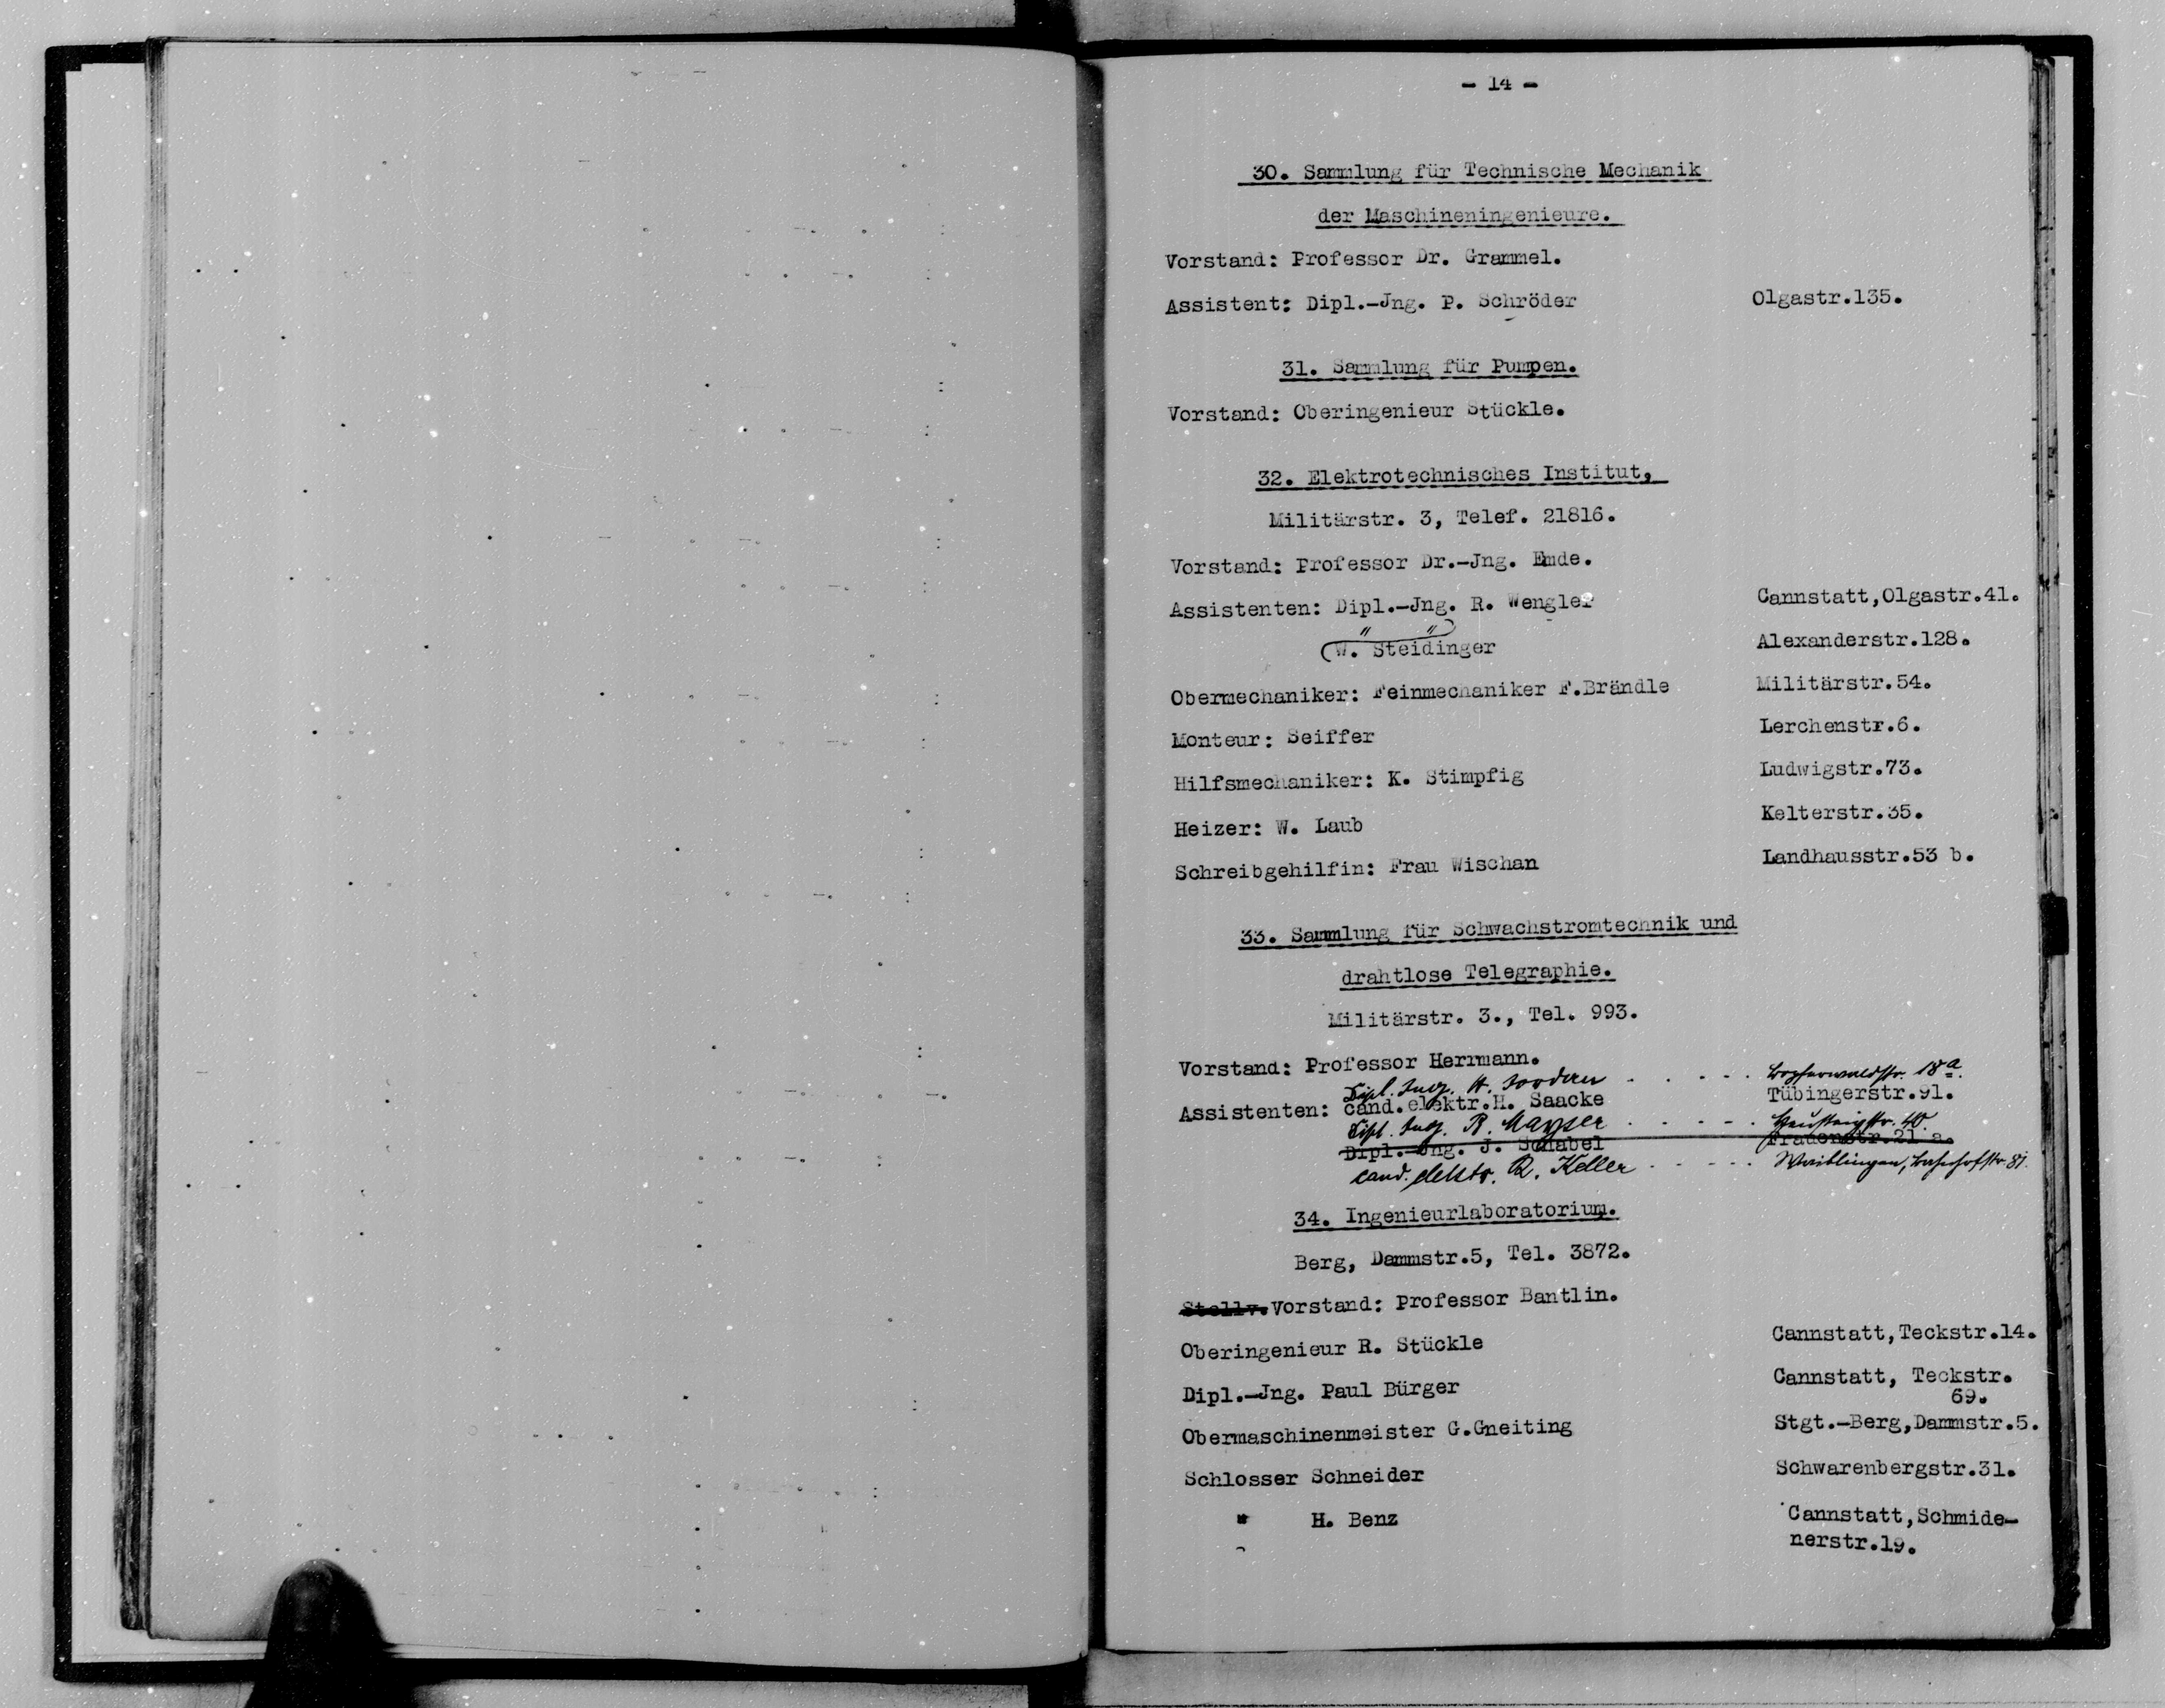 - 14 -
30. Sammlung für Technische Mechanik
der Maschineningenieure.
Vorstand: Professor Dr. Grammel.
Assistent: Dipl.-Jng. P. Schröder Olgastr.135.
31. Sammlung für Pumpen.
Vorstand: Oberingenieur Stückle.
32. Elektrotechnisches Institut,
Militärstr. 3, Telef. 21816.
Vorstand: Professor Dr.-Jng. Emde.
Assistenten: Dipl.-Jng. R. Wengler Cannstatt,Olgastr.41.
" "
W. Steidinger Alexanderstr.128.
Obermechaniker: Feinmechaniker F.Brändle Militärstr.54.
Monteur: Seiffer Lerchenstr.6.
Hilfsmechaniker: K. Stimpfig Ludwigstr.73.
Heizer: W. Laub Kelterstr.35.
Schreibgehilfin: Frau Wischan Landhausstr.53 b.
33. Sammlung für Schwachstromtechnik und
drahtlose Telegraphie.
Militärstr. 3., Tel. 993.
Vorstand: Professor Herrmann.
Dipl. Ing. H. . . . . . 18a.
Assistenten: cand.elektr.H. Saacke Tübingerstr.91.
Dipl. Ing. R. Mayser . . . . . 40.
Dipl.-Jng. J. Schabel Frauenstr.21 a.
cand. elektr. R. Keller . . . . . Waiblingen, Bahnhofstr. 81.
34. Ingenieurlaboratorium.
Berg, Dammstr.5, Tel. 3872.
Stellv.Vorstand: Professor Bantlin.
Oberingenieur R. Stückle Cannstatt,Teckstr.14.
Dipl.-Jng. Paul Bürger Cannstatt, Teckstr.
69.
Obermaschinenmeister G.Gneiting Stgt.-Berg,Dammstr.5.
Schlosser Schneider Schwarenbergstr.31.
" H. Benz Cannstatt,Schmide-
nerstr.19.